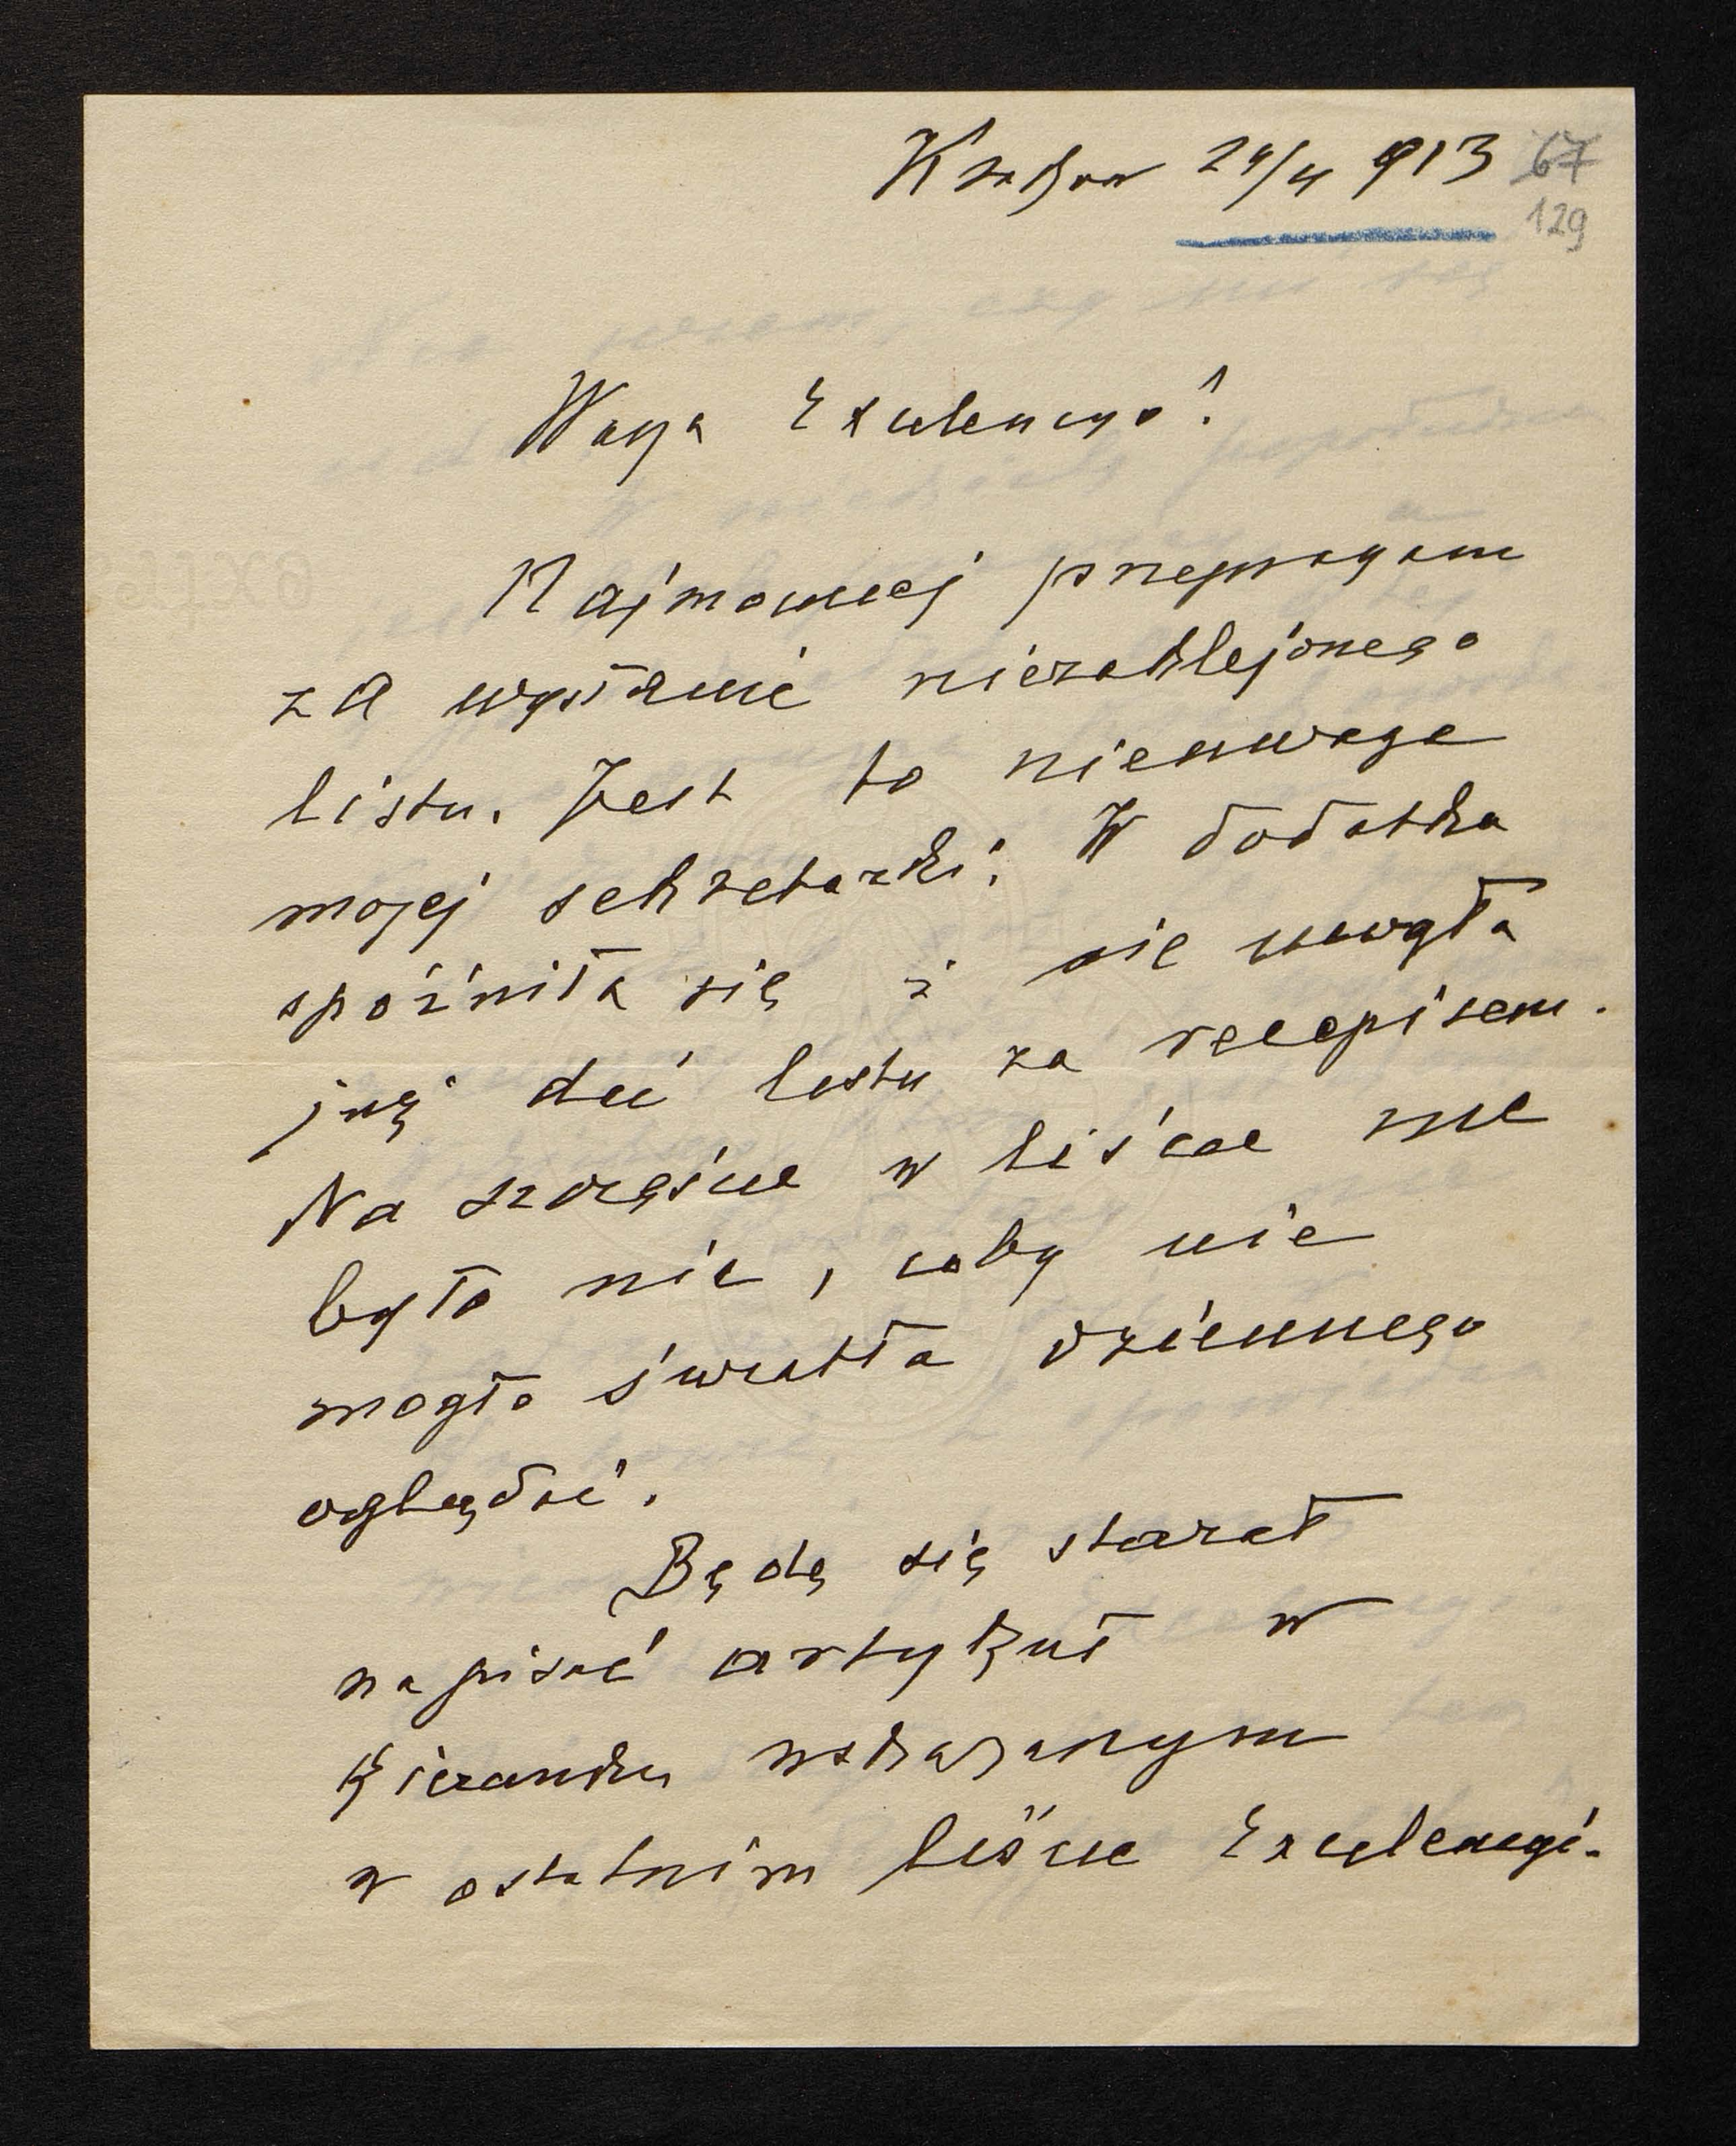 Kraków 24/4 913 67
129
Wasza Excelencyo!
Najmocniej przepraszam
za wysłanie niezaklejonego
listu. Jest to nieuwaga
mojej sekretarki. W dodatku
spóźniła się i nie mogła
już dać listu za recepisem.
Na szczęście w liście nie
było nic, coby nie
mogło światła dziennego
oglądać.
Będę się starał
napisać artykuł w
kierunku wskazanym
w ostatnim liście Excelencyi.